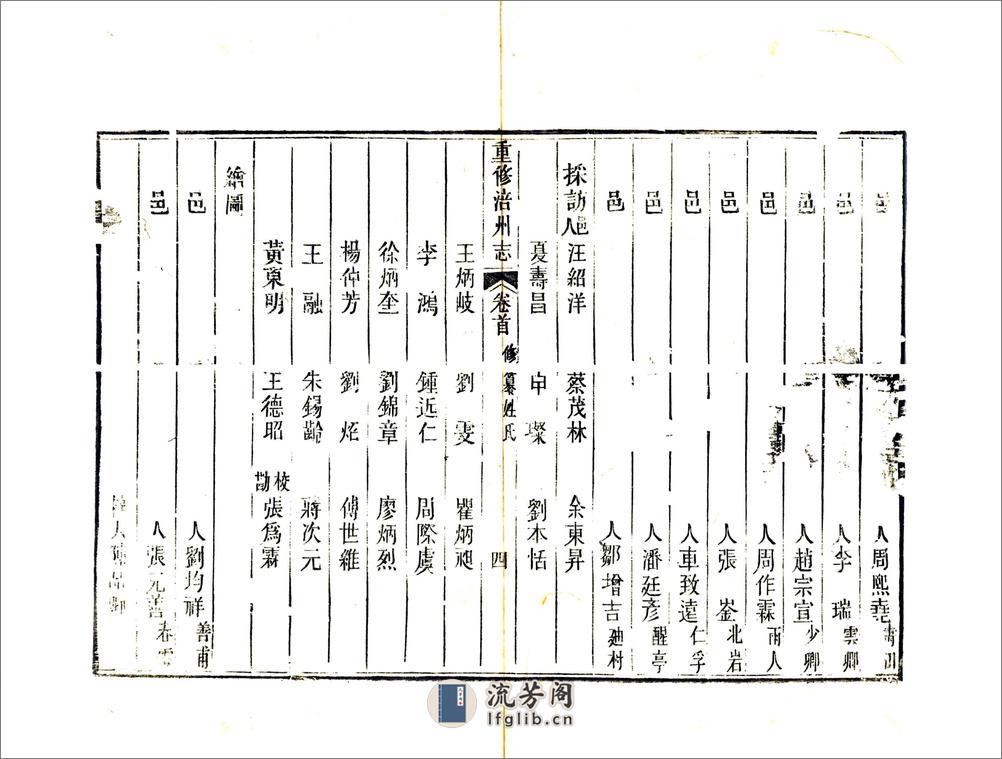 邑人周熙堯
邑人李瑞雲卿
邑人趙宗宣少卿
邑人周作霖雨人
邑人張崟北岩
邑人車致遠仁孚
邑人潘廷彥醒亭
邑人鄒增吉廸村
採訪邑人汪紹洋 蔡茂林 余東昇
夏壽昌 申璨 劉本恬
重修涪州志 卷首 修纂姓氏 四
王炳岐 劉雯 瞿炳昶
李鴻 鍾近仁 周際虞
徐炳奎 劉錦章 廖炳烈
楊仲芳 劉炬 傅世維
王融 朱錫齡 蔣次元
黃秉明 王德昭 校勘張為霖
繪圖
邑人劉均祥善甫
邑人張元善春
流芳阁
lfglib.cn